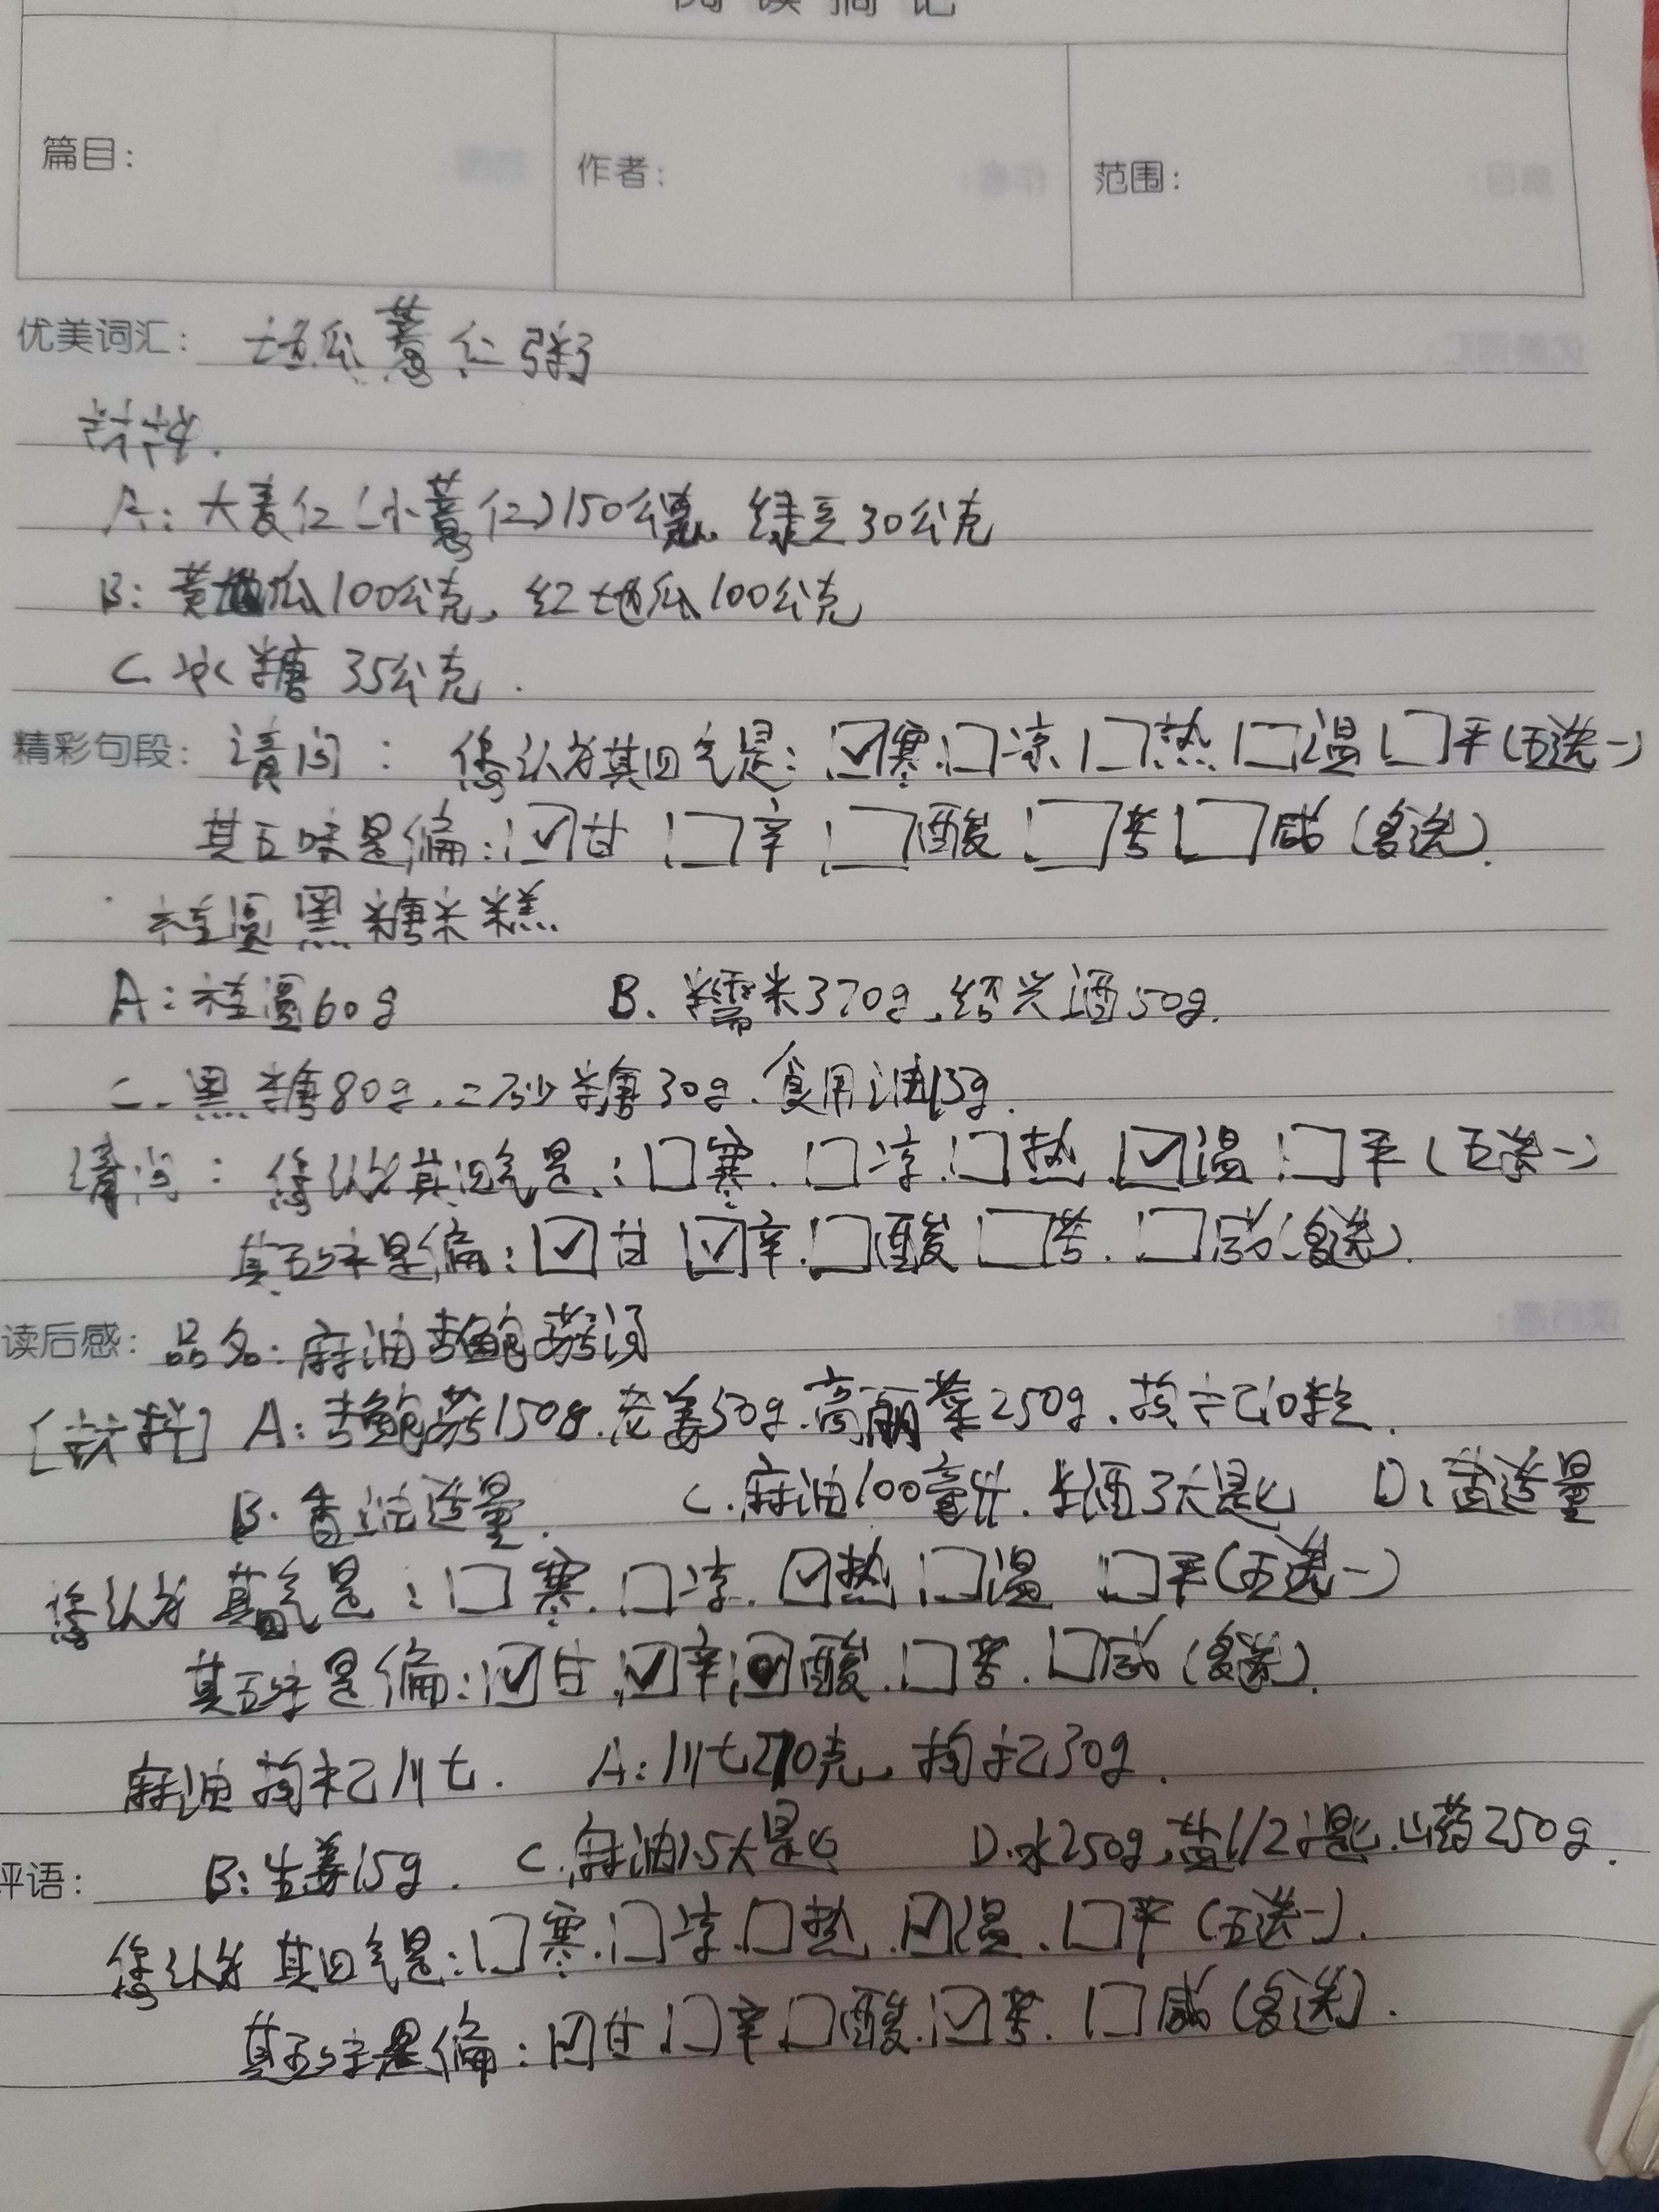 阅读摘记
篇目：
作者：
范围：
优美词汇： 地瓜薏仁粥
材料.
A: 大麦仁(小薏仁)150公克、绿豆30公克
B: 黄地瓜100公克, 红地瓜100公克
C. 冰糖 35公克.
精彩句段： 请问： 您认为其四气是: ☑寒.□凉.□热□温□平(五选一)
其五味是偏: ☑甘 □辛 □酸 □苦 □咸 (多选).
桂圆黑糖米糕
A: 桂圆60g B. 糯米370g、绍兴酒50g.
C. 黑糖80g、二砂糖30g、食用油15g.
请问： 您认为其四气是: □寒. □凉.□热.☑温 □平(五选一)
其五味是偏: ☑甘 ☑辛.□酸 □苦. □咸(多选).
读后感： 品名: 麻油杏鲍菇汤
[材料] A: 杏鲍菇150g.老姜50g.高丽菜250g、枸杞10粒.
B. 香油适量. C.麻油100毫升.米酒3大匙 D: 盐适量
您认为其四气是: □寒.□凉.☑热□温 □平(五选一)
其五味是偏: ☑甘.☑辛.☑酸.□苦.□咸(多选).
麻油枸杞川七. A: 川七270克, 枸杞30g.
B: 生姜15g. C.麻油1.5大匙 D.水250g,盐1/2小匙.山药250g.
评语：
您认为其四气是: □寒.□凉.□热.☑温.□平(五选一).
其五味是偏: ☑甘.□辛□酸.☑苦. □咸(多选).